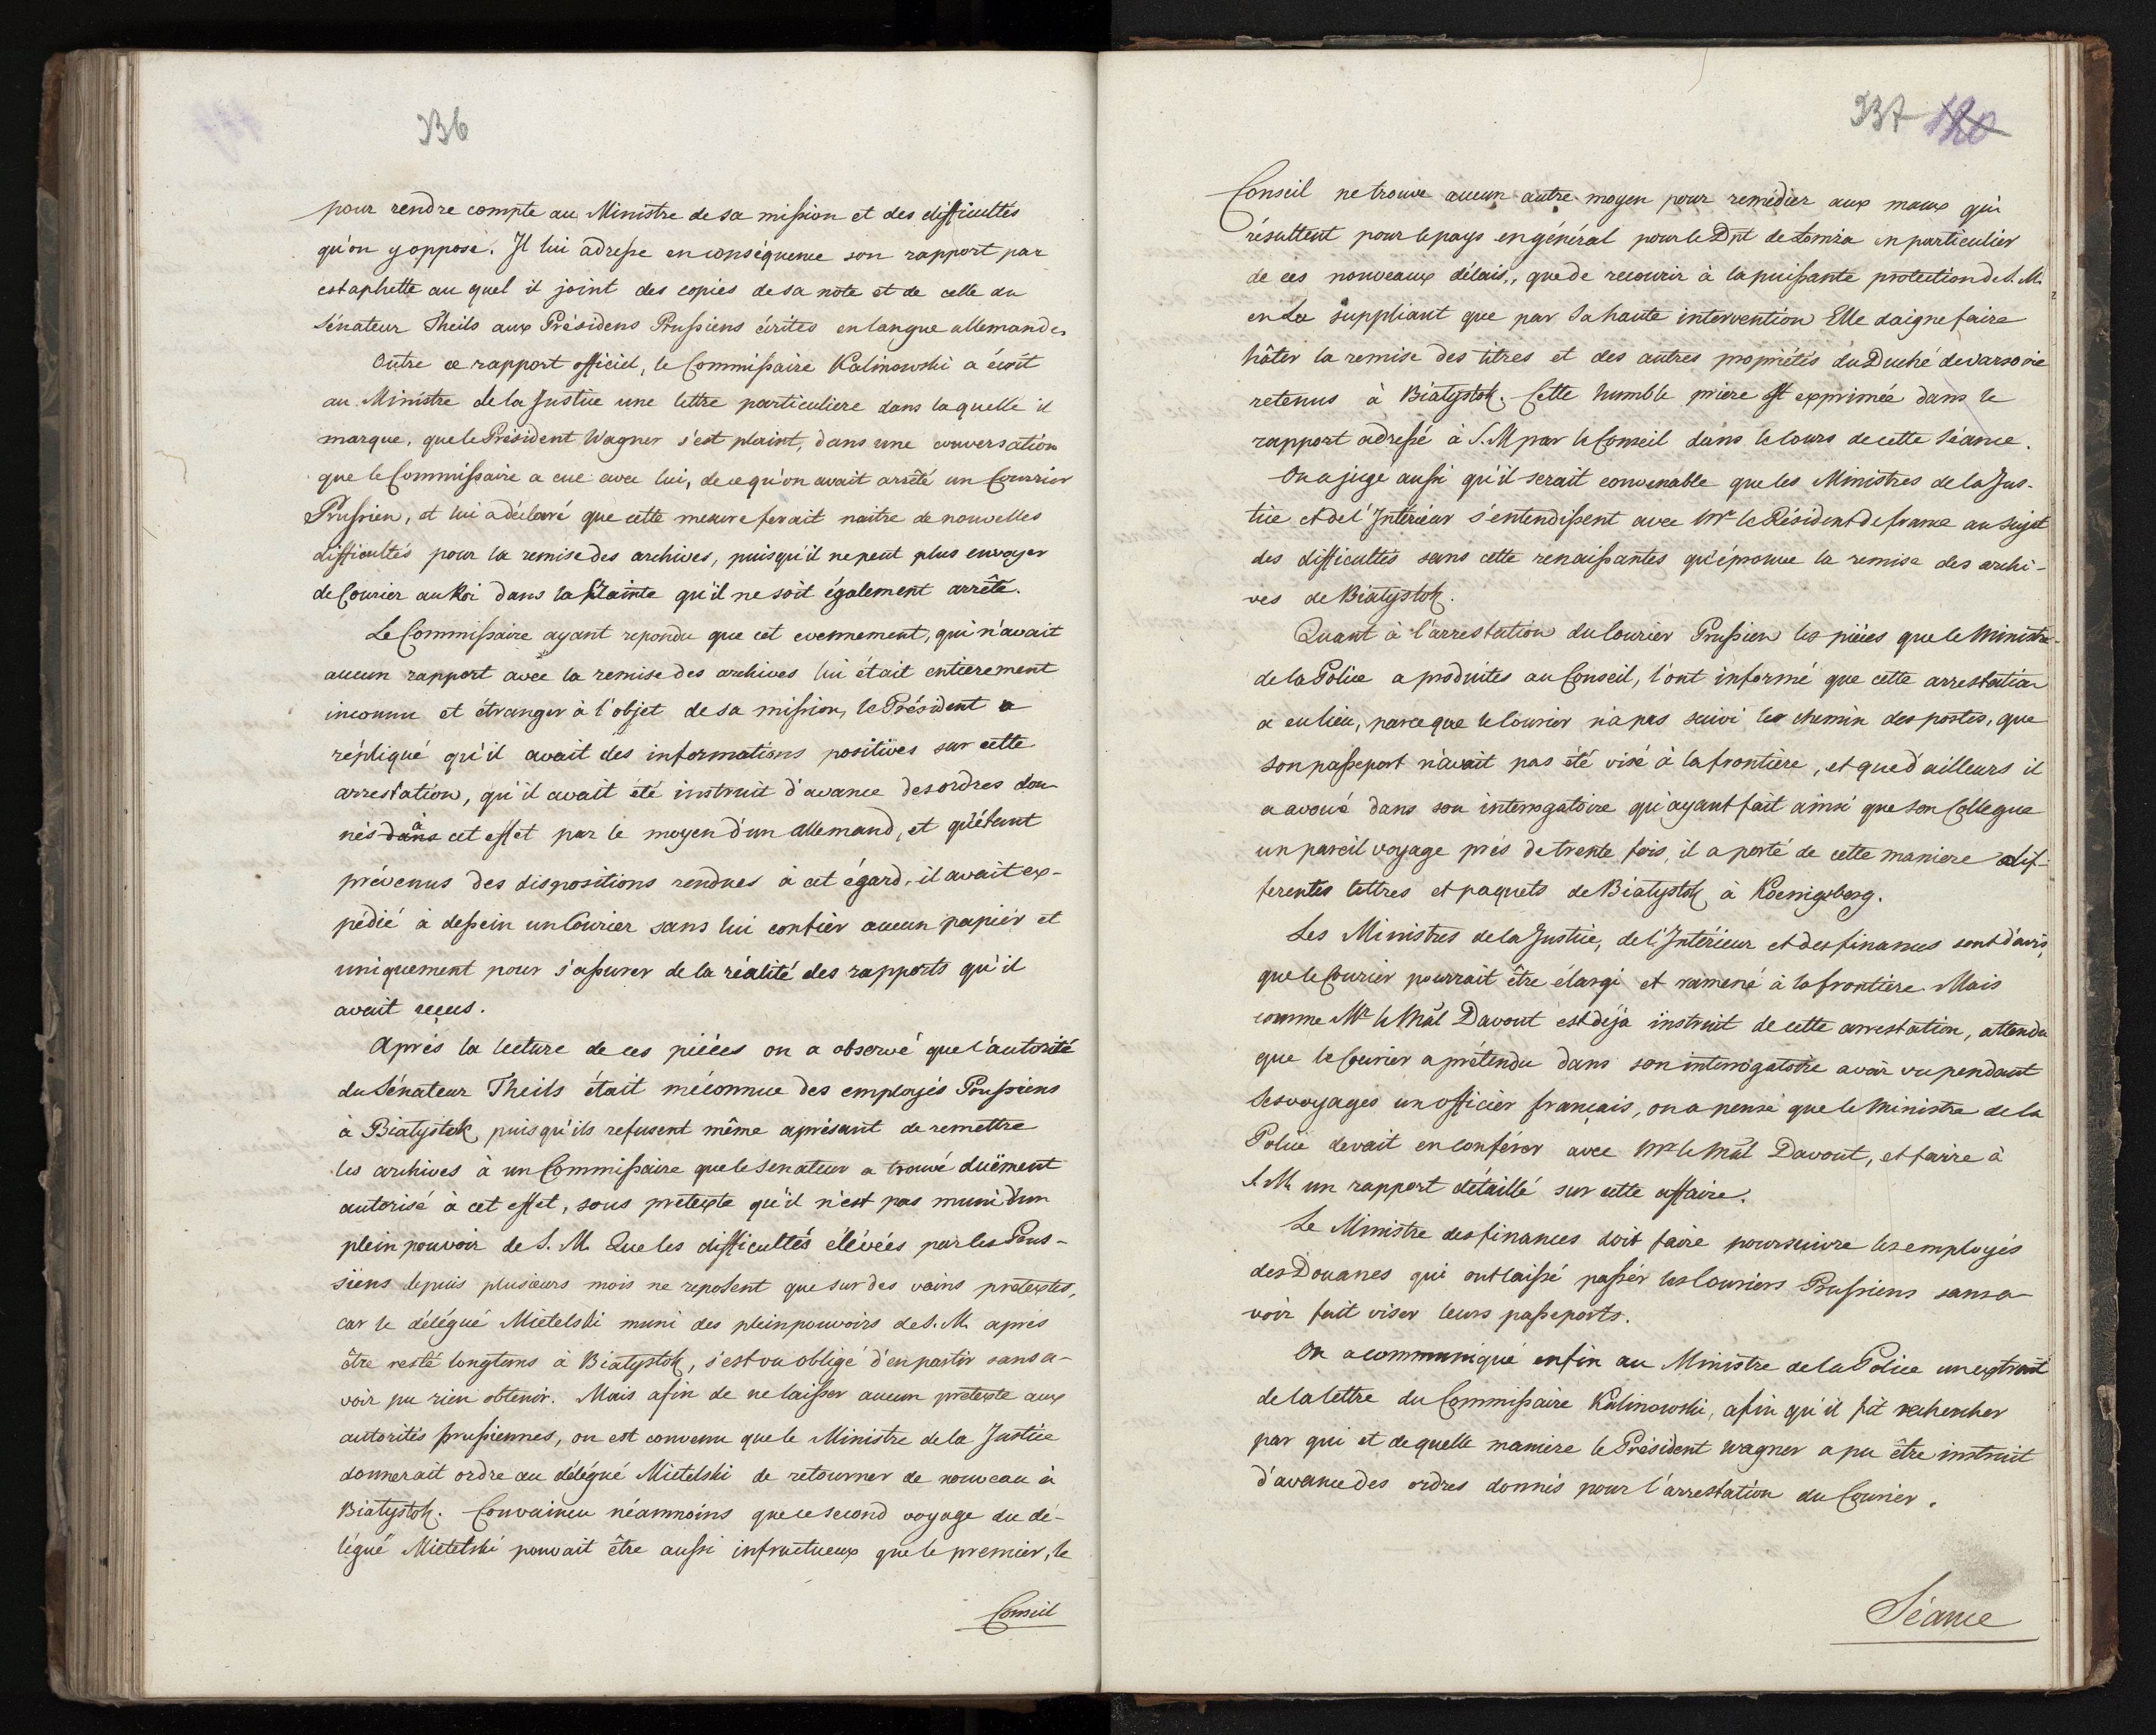 336
pour rendre compte au Ministre de sa mission et des difficultés
qu'on y oppose. Il lui adresse en conséquence son rapport par
estaphette au quel il joint des copies de sa note et de celle du
Sénateur Theils aux Présidens Prussiens écrites en langue allemande.
Outre ce rapport officiel, le Commissaire Kalinowski a écrit
au Ministre de la Justice une lettre particuliere dans laquelle il
marque, que le Président Wagner s'est plaint, dans une conversation
que le Commissaire a eue avec lui, de ce qu'on avait arrêté un Courrier
Prussien, et lui a déclaré que cette mesure ferait naitre de nouvelles
difficultés pour la remise des archives, puisqu'il ne peut plus envoyer
de Courier au Roi dans la plainte qu'il ne soit également arrêté.
Le Commissaire ayant repondu que cet evennement, qui n'avait
aucun rapport avec la remise des archives lui était entierement
inconnu et étranger à l'objet de sa mission, le Président a
répliqué qu'il avait des informations positives sur cette
arrestation, qu'il avait été instruit d'avance des ordres don-
nés dans à cet effet par le moyen d'un allemand, et qu'étant
prévenus des dispositions rendues à cet égard, il avait ex-
pédié à dessein un Courier sans lui confier aucun papier et
uniquement pour s'assurer de la réalité des rapports qu'il
avait reçus.
Après la lecture de ces piéces on a observé que l'autorité
du Sénateur Theils était méconnue des employés Prussiens
à Bialystok, puisqu'ils refusent même aprésent de remettre
les archives à un Commissaire que le senateur a trouvé duëment
autorisé à cet effet, sous pretexte qu'il n'est pas muni d'un
plein pouvoir de S. M. Que les difficultés élévées par les Prus-
siens depuis plusieurs mois ne reposent que sur des vains pretextes,
car le délégué Mietelski muni des pleinpouvoirs de S. M. après
être resté longtems à Bialystok, s'est vu obligé d'en partir sans a-
voir pu rien obtenir. Mais afin de ne laisser aucun prétexte aux
autorités prussiennes, on est convenu que le Ministre de la Justice
donnerait ordre au délégué Mietelski de retourner de nouveau à
Bialystok. Convaincu néanmoins que ce second voyage du dé-
légué Mietelski pouvait être aussi infructueux que le premier, le
Conseil
337 120
Conseil ne trouve aucun autre moyen pour remédier aux maux qui
résultent pour le pays en général pour le Dpt de Lomza en particulier
de ces nouveaux délais, que de recourir à la puissante protection de S. M.
en La suppliant que par Sa haute intervention Elle daigne faire
hâter la remise des titres et des autres propriétés du Duché de varsovie
retenus à Bialystok. Cette humble priere est exprimée dans le
rapport adressé à S. M par le Conseil dans le Cours de cette Séance.
On a jugé aussi qu'il serait convenable que les Ministres de la Jus-
tice et de l'Intérieur s'entendissent avec Mr le Résident de france au sujet
des difficultés sans cette renaissantes qu'éprouve la remise des archi-
ves de Bialystok.
Quant à l'arrestation du Courier Prussien les piéces que le Ministre
de la Police a produites au Conseil, l'ont informé que cette arrestation
a eu lieu, parce que le Courier n'a pas suivi les chemin des postes, que
son passeport n'avait pas été visé à la frontiere, et que d'ailleurs il
a avoué dans son interrogatoire qu'ayant fait ainsi que son Collegue
un pareil voyage près de trente fois, il a porté de cette maniere dif-
ferentes lettres et paquets de Bialystok à Koenigsberg.
Les Ministres de la Justice, de l'Intérieur et des finances sont d'avis,
que le Courier pourrait être élargi et ramené à la frontiere. Mais
comme Mr le Mal Davout est déja instruit de cette arrestation, attendu
que le Courier a prétendu dans son interrogatoire avoir vu pendant
Ses voyages un officier français, on a pensé que le Ministre de la
Police devait en Conférer avec Mr le Mal Davout, et faire à
S. M. un rapport détaillé sur cette affaire.
Le Ministre des finances doit faire poursuivre les employés
des Douanes qui ont laissé passér les Couriers Prussiens sans a-
voir fait viser leurs passeports.
On a communiqué enfin au Ministre de la Police un extrait
de la lettre du Commissaire Kalinowski, afin qu'il fit rechercher
par qui et de quelle maniere le Président Wagner a pu être instruit
d'avance des ordres donnés pour l'arrestation du Courier.
Séance